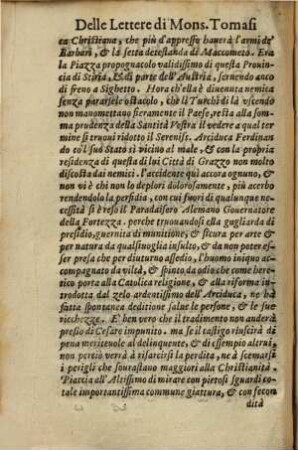 Delle Lettere di Mons. Tomasi
ca Christiana, che più d'appresso hauerà l'armi de'
Barbari, & la setta detestanda di Maccometo. Era
la Piazza propognacolo validissimo di questa Prouin-
cia di Stiria, & di parte dell'Austria, seruendo anco
di freno a Sighetto. Hora ch'ella è diuenuta nemica
senza pararsele ostacolo, che li Turchi di là vscendo
non manomettano fieramente il Paese, resta alla som-
ma prudenza della Santità Vostra il vedere a qual ter
mine si truoui ridotto il Sereniss. Arciduca Ferdinan
do co'l suo Stato sì vicino al male, & con la propria
residenza di questa di lui Città di Grazzo non molto
discosta dai nemici. l'accidente quì accora ognuno, &
non vi è chi non lo deplori dolorosamente, più acerbo
rendendolo la perfidia, con cui fuori di qualunque ne-
cessità si è reso il Paradaisero Alemano Gouernatore
della Fortezza. perche trouandosi ella gagliarda di
presidio, guernita di munitione, & sicura per arte &
per natura da qualsiuoglia insulto, & da non poter es-
ser presa che per diuturno assedio, l'huomo iniquo ac-
compagnato da viltà, & spinto da odio che come here-
tico porta alla Catolica religione, & alla riforma in-
trodotta dal zelo ardentissimo dell'Arciduca, ne hà
fatta spontanea deditione salue le persone, & le sue
ricchezze. E' ben vero che il tradimento non anderà
presso di Cesare impunito. ma se il castigo riuscirà di
pena meriteuole al delinquente, & di essempio altrui,
non pertiò verrà à risarcirsi la perdita, ne à scemarsi
i perigli che sourastano maggiori alla Christianità.
Piaccia all'Altissimo di mirare con pietosi sguardi co-
tale importantissima commune giattura, & con fecon
dità